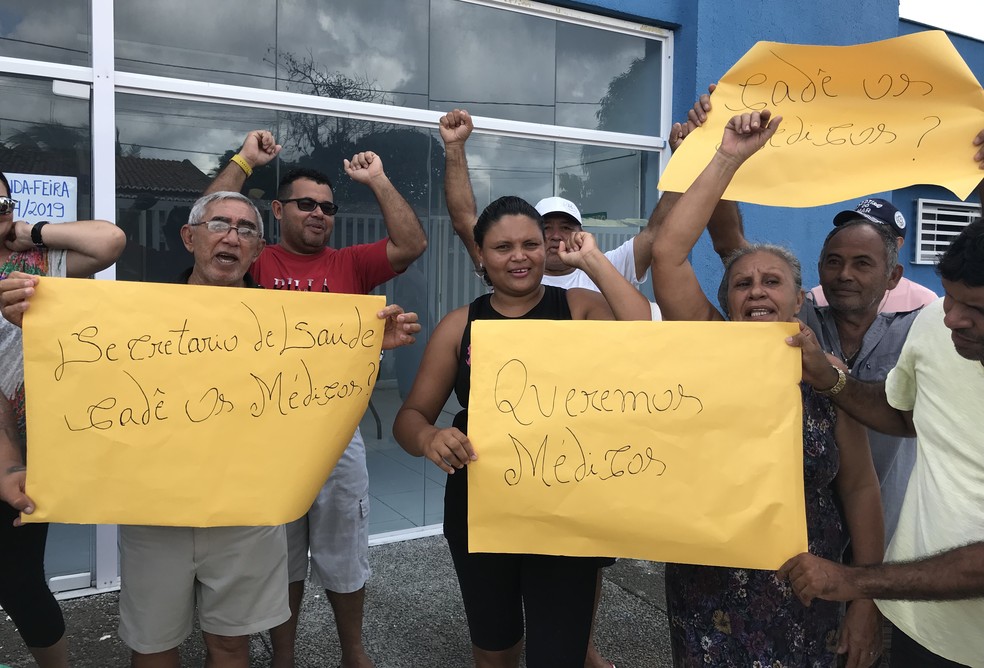 NDA-FEIRA
/2019
Cadê os
Médicos?
Secretario de Saúde
Cadê os Médicos?
Queremos
Médicos